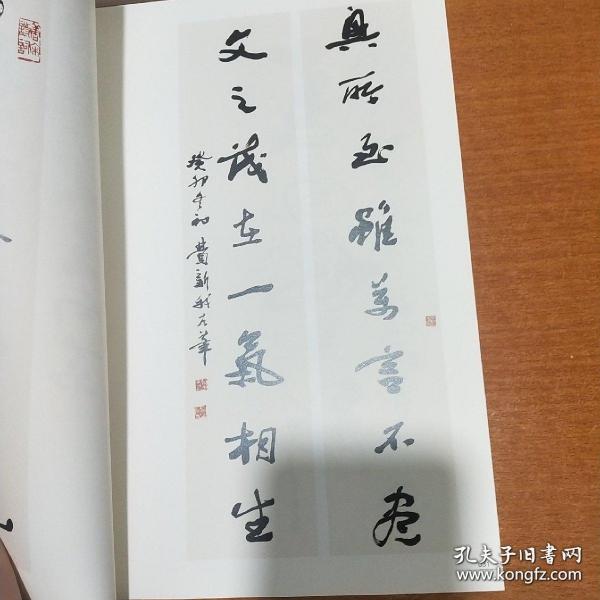 興所至雖万言不尽
文之茂在一氣相生
癸卯冬初費新我左筆
孔夫子旧书网
www.kongfz.com